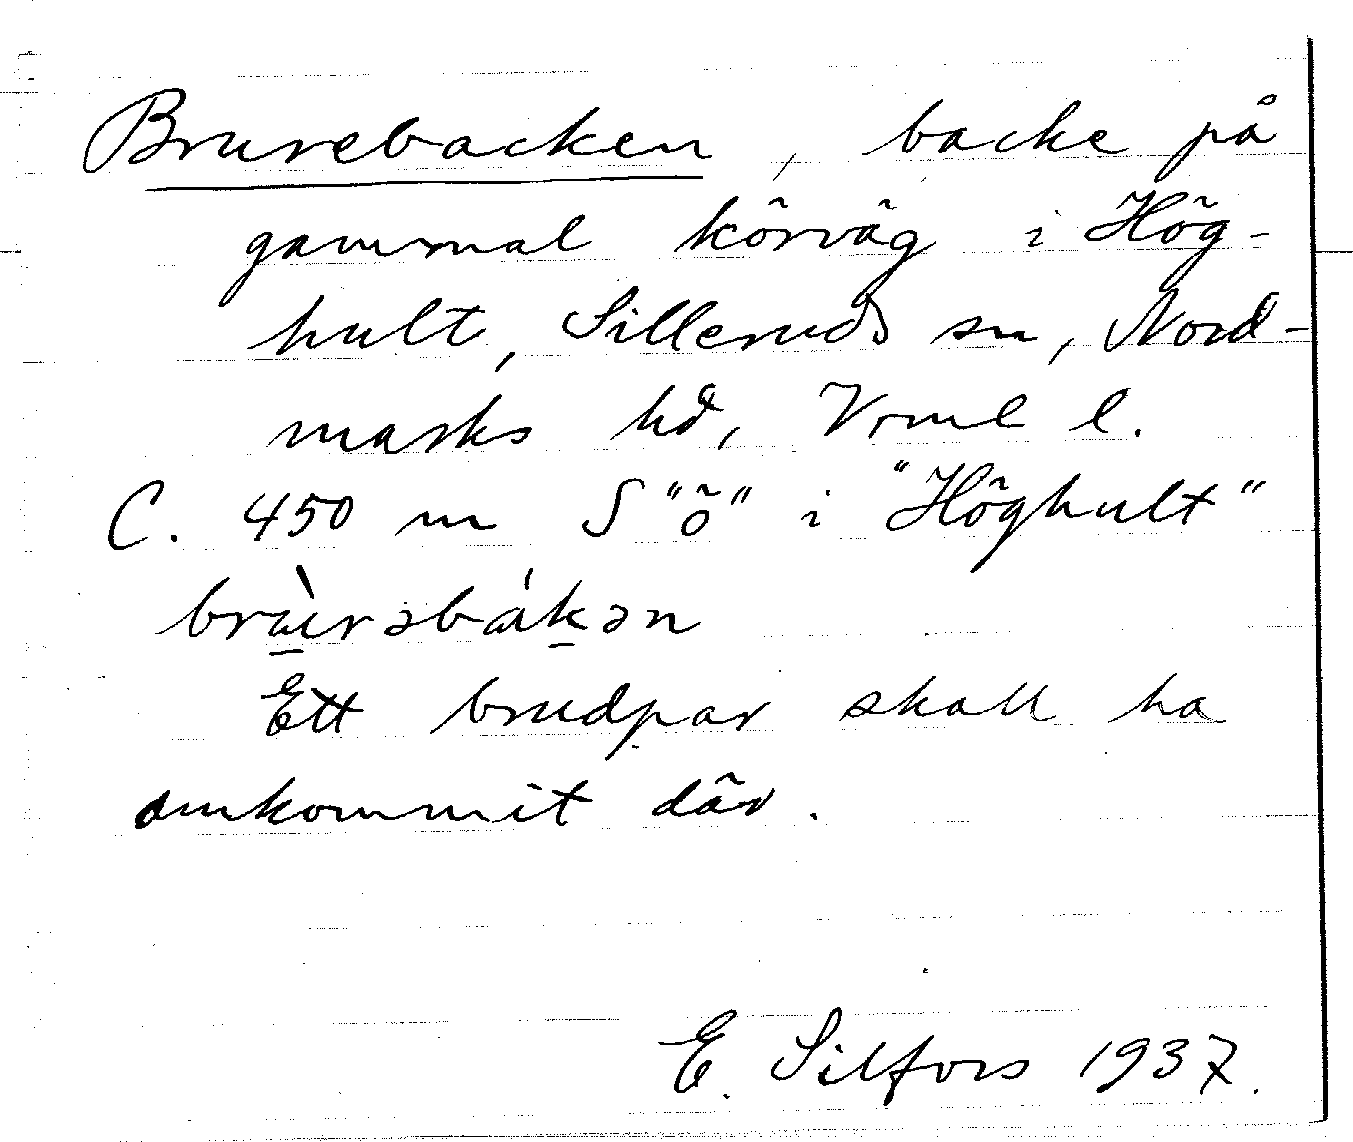 Brurebacken, backe på
gammal körväg i Hög-
hult, Silleruds sn, Nord-
marks hd, Vrml l.
C. 450 m S "ö" i "Höghult"
brùrəbákən
Ett brudpar skall ha
omkommit där.
E. Silfors 1937.